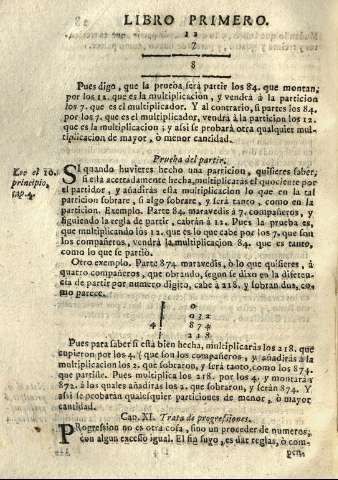 LIBRO PRIMERO.
12
7
8
Pues digo, que la prueba será partir los 84. que montan,
por los 12. que es la multiplicacion, y vendrá à la particion
los 7. que es el multiplicador. Y al contrario, si partes los 84.
por los 7. que es el multiplicador, vendrá à la particion los 12.
que es la multiplicacion; y assi se probará otra qualquier mul-
tiplicacion de mayor, ò menor cantidad.
Prueba del partir.
SI quando huvieres hecho una particion, quisieres saber,
si está acertadamente hecha, multiplicarás el quociente por
el partidor, y añadirás esta multiplicacion lo que en la tal
particion sobrare, si algo sobrare, y será tanto, como en la
particion. Exemplo. Parte 84 maravedis à 7. compañeros, y
siguiendo la regla de partir, cabrán à 12. Pues la prueba es,
que multiplicando los 12. que es lo que cabe por los 7. que son
los compañeros, vendrá la multiplicacion 84. que es tanto,
como lo que se partio.
10.
principio,
cap. 4.
Otro exemplo. Parte 874 maravedis, ò lo que quisieres, à
quatro compañeros, que obrando, segun se dixo en la
de partir por numero digito, cabe à 218. y sobran dos, co-
mo parece.
0
032
4 874
218
Pues para saber si está bien hecha, multiplicarás los 218. que
cupieron por los 4. (que son los compañeros, y añadirás à la
multiplicacion los 2. que sobraron, y será tanto, como los 874.
que partiste. Pues multiplica los 218. por los 4. y montarán
872. à los quales añadirás los 2. que sobraron, y serán 874. Y
assi se probarán qualesquier particiones de menor, ò mayor
cantidad.
Cap. XI. Trata de progressiones.
PRogression no es otra cosa, sino un proceder de numeros,
con algun excesso igual. El fin suyo, es dar reglas, ò com-
pen-